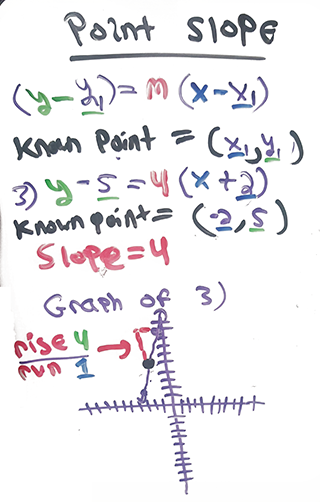 Point Slope
(y-y₁)=m(x-x₁)
Known Point = (x₁,y₁)
3) y-5=4(x+2)
Known point= (-2,5)
Slope=4
Graph of 3)
rise 4
run 1